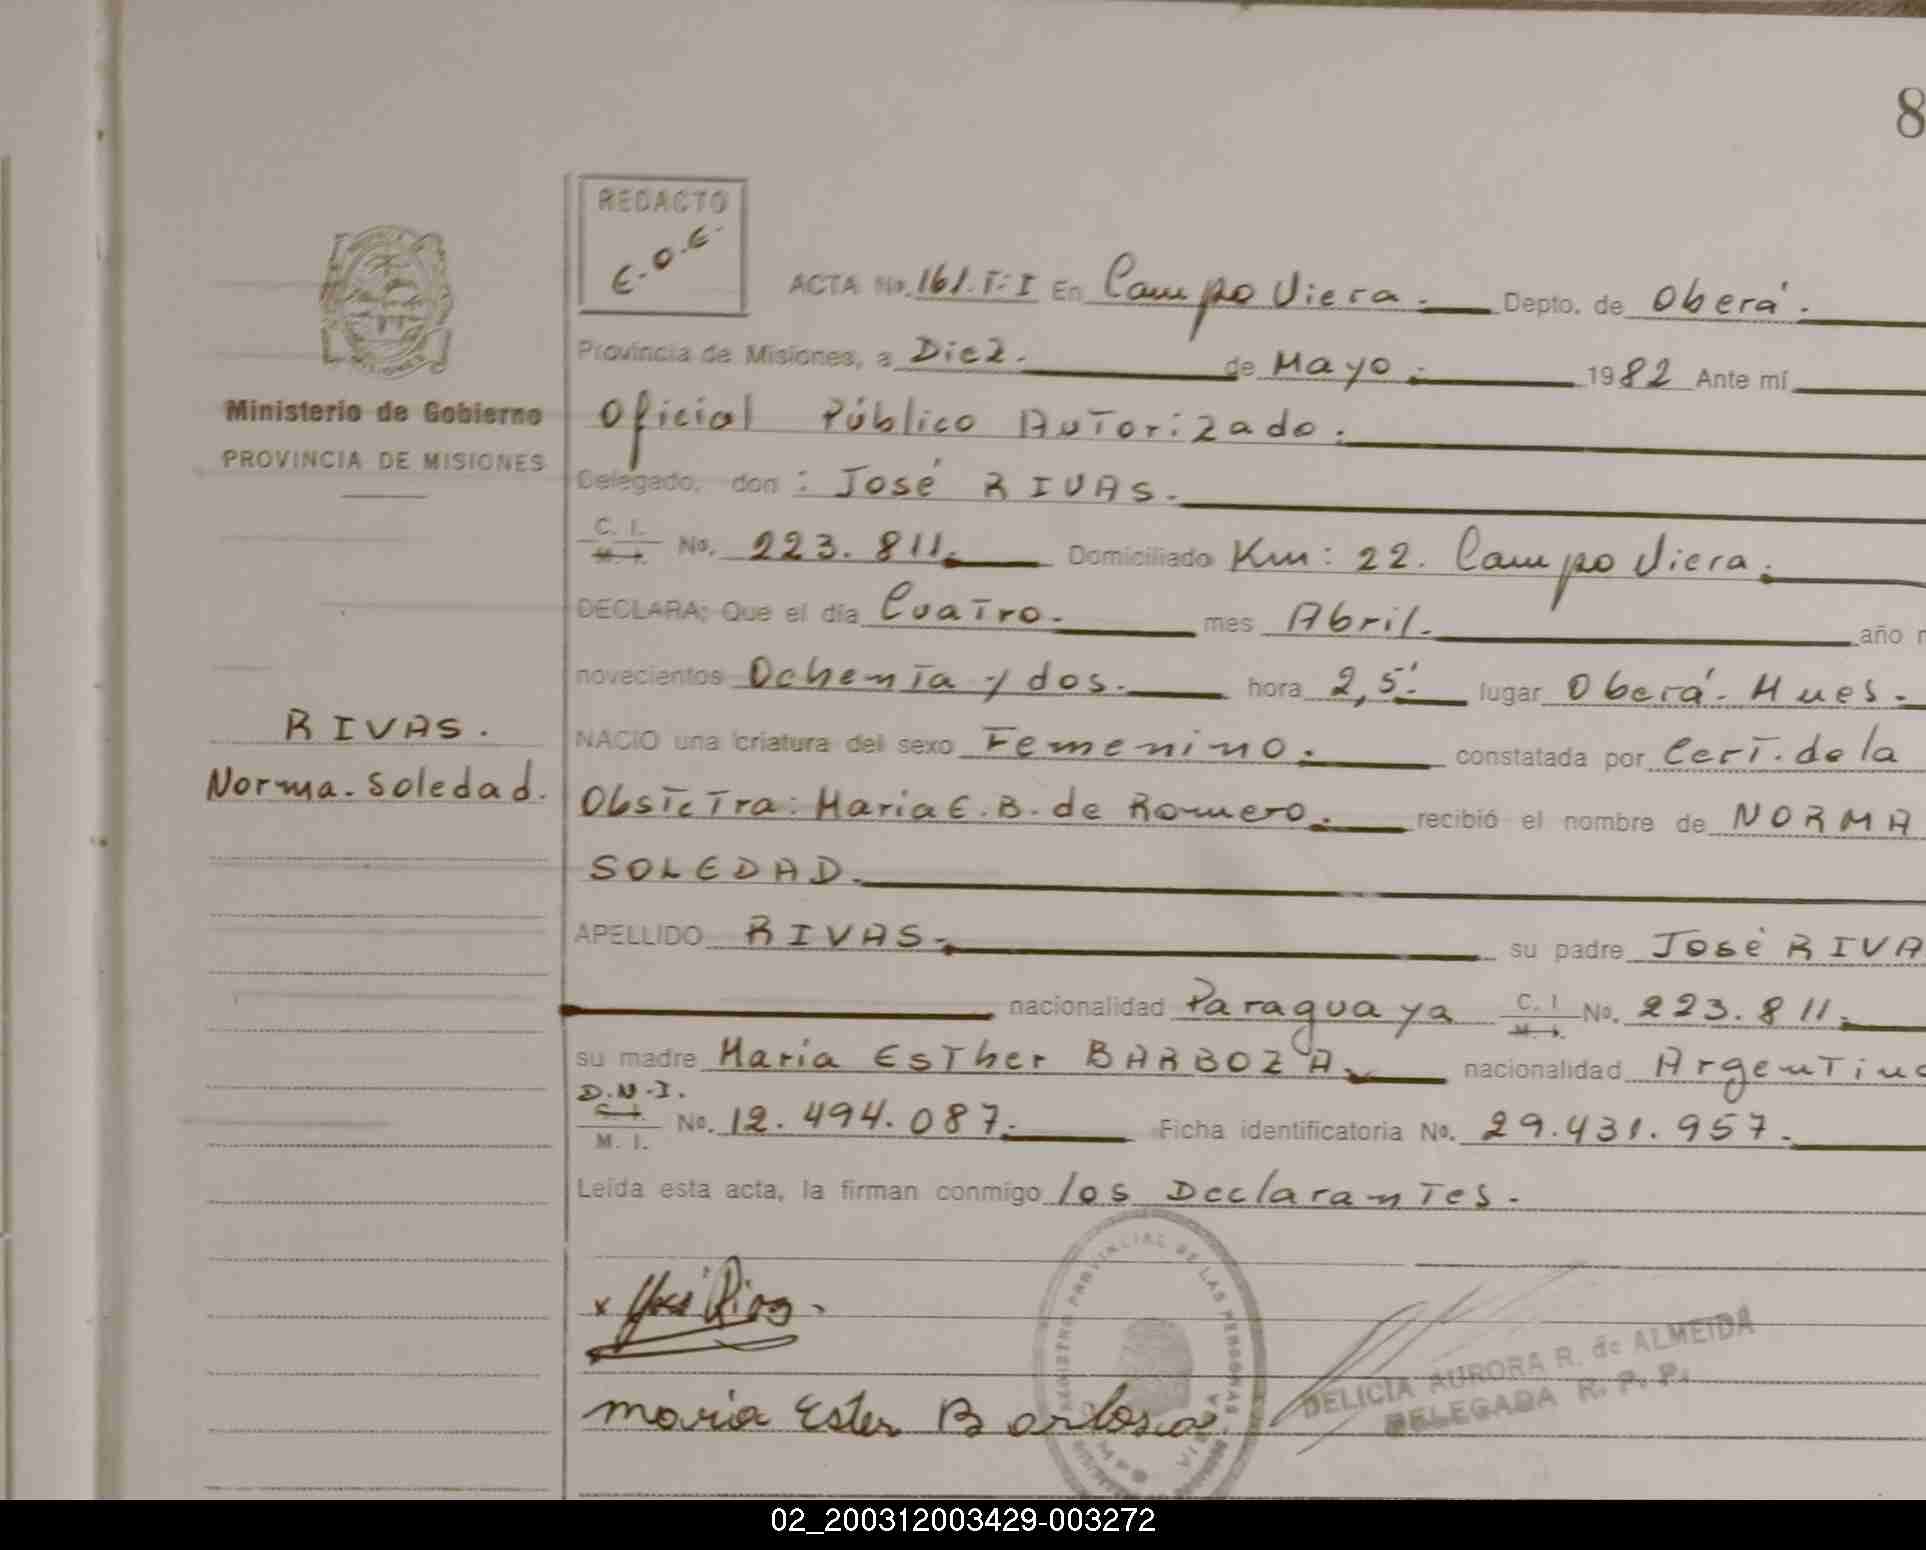 8
REDACTO
E.O.E.
ACTA No. 161.T:I En Campo Viera. Depto. de Oberá.
Provincia de Misiones, a Diez. de Mayo. 1982 Ante mí
Ministerio de Gobierno
PROVINCIA DE MISIONES
Oficial Público Autorizado.
Delegado, don: José RIVAS.
C. I.
M. I. No. 223.811. Domiciliado Km: 22. Campo Viera.
DECLARA; Que el día Cuatro. mes Abril. año
novecientos Ochenta y dos. hora 2,5' lugar Oberá. Mnes.
RIVAS.
Norma. Soledad.
NACIO una criatura del sexo Femenino. constatada por Cert. de la
Obstetra: Maria E. B. de Romero. recibió el nombre de NORMA
SOLEDAD.
APELLIDO RIVAS. su padre José RIVA
nacionalidad Paraguaya C. I.
M. I. No. 223.811.
su madre Maria Esther BARBOZA. nacionalidad Argentina
D.N.I.
C. I.
M. I. No. 12.494.087. Ficha identificatoria No. 29.431.957.
Leída esta acta, la firman conmigo los Declarantes.
x José Rivas.
maria Ester Barbosa
REGISTRO PROVINCIAL DE LAS PERSONAS
DELICIA AURORA R. de ALMEIDA
DELEGADA R. P. P.
02_200312003429-003272